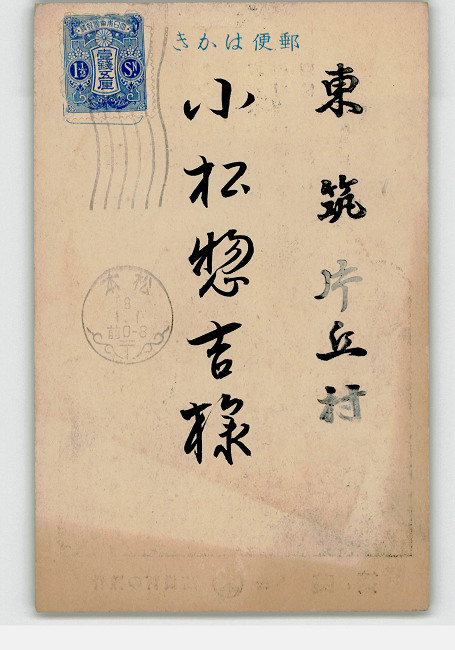 郵便はかき
大日本帝國郵便
壹錢五厘
1½ Sn
東筑片丘村
小松惣吉様
松本
8
1.
前0-8